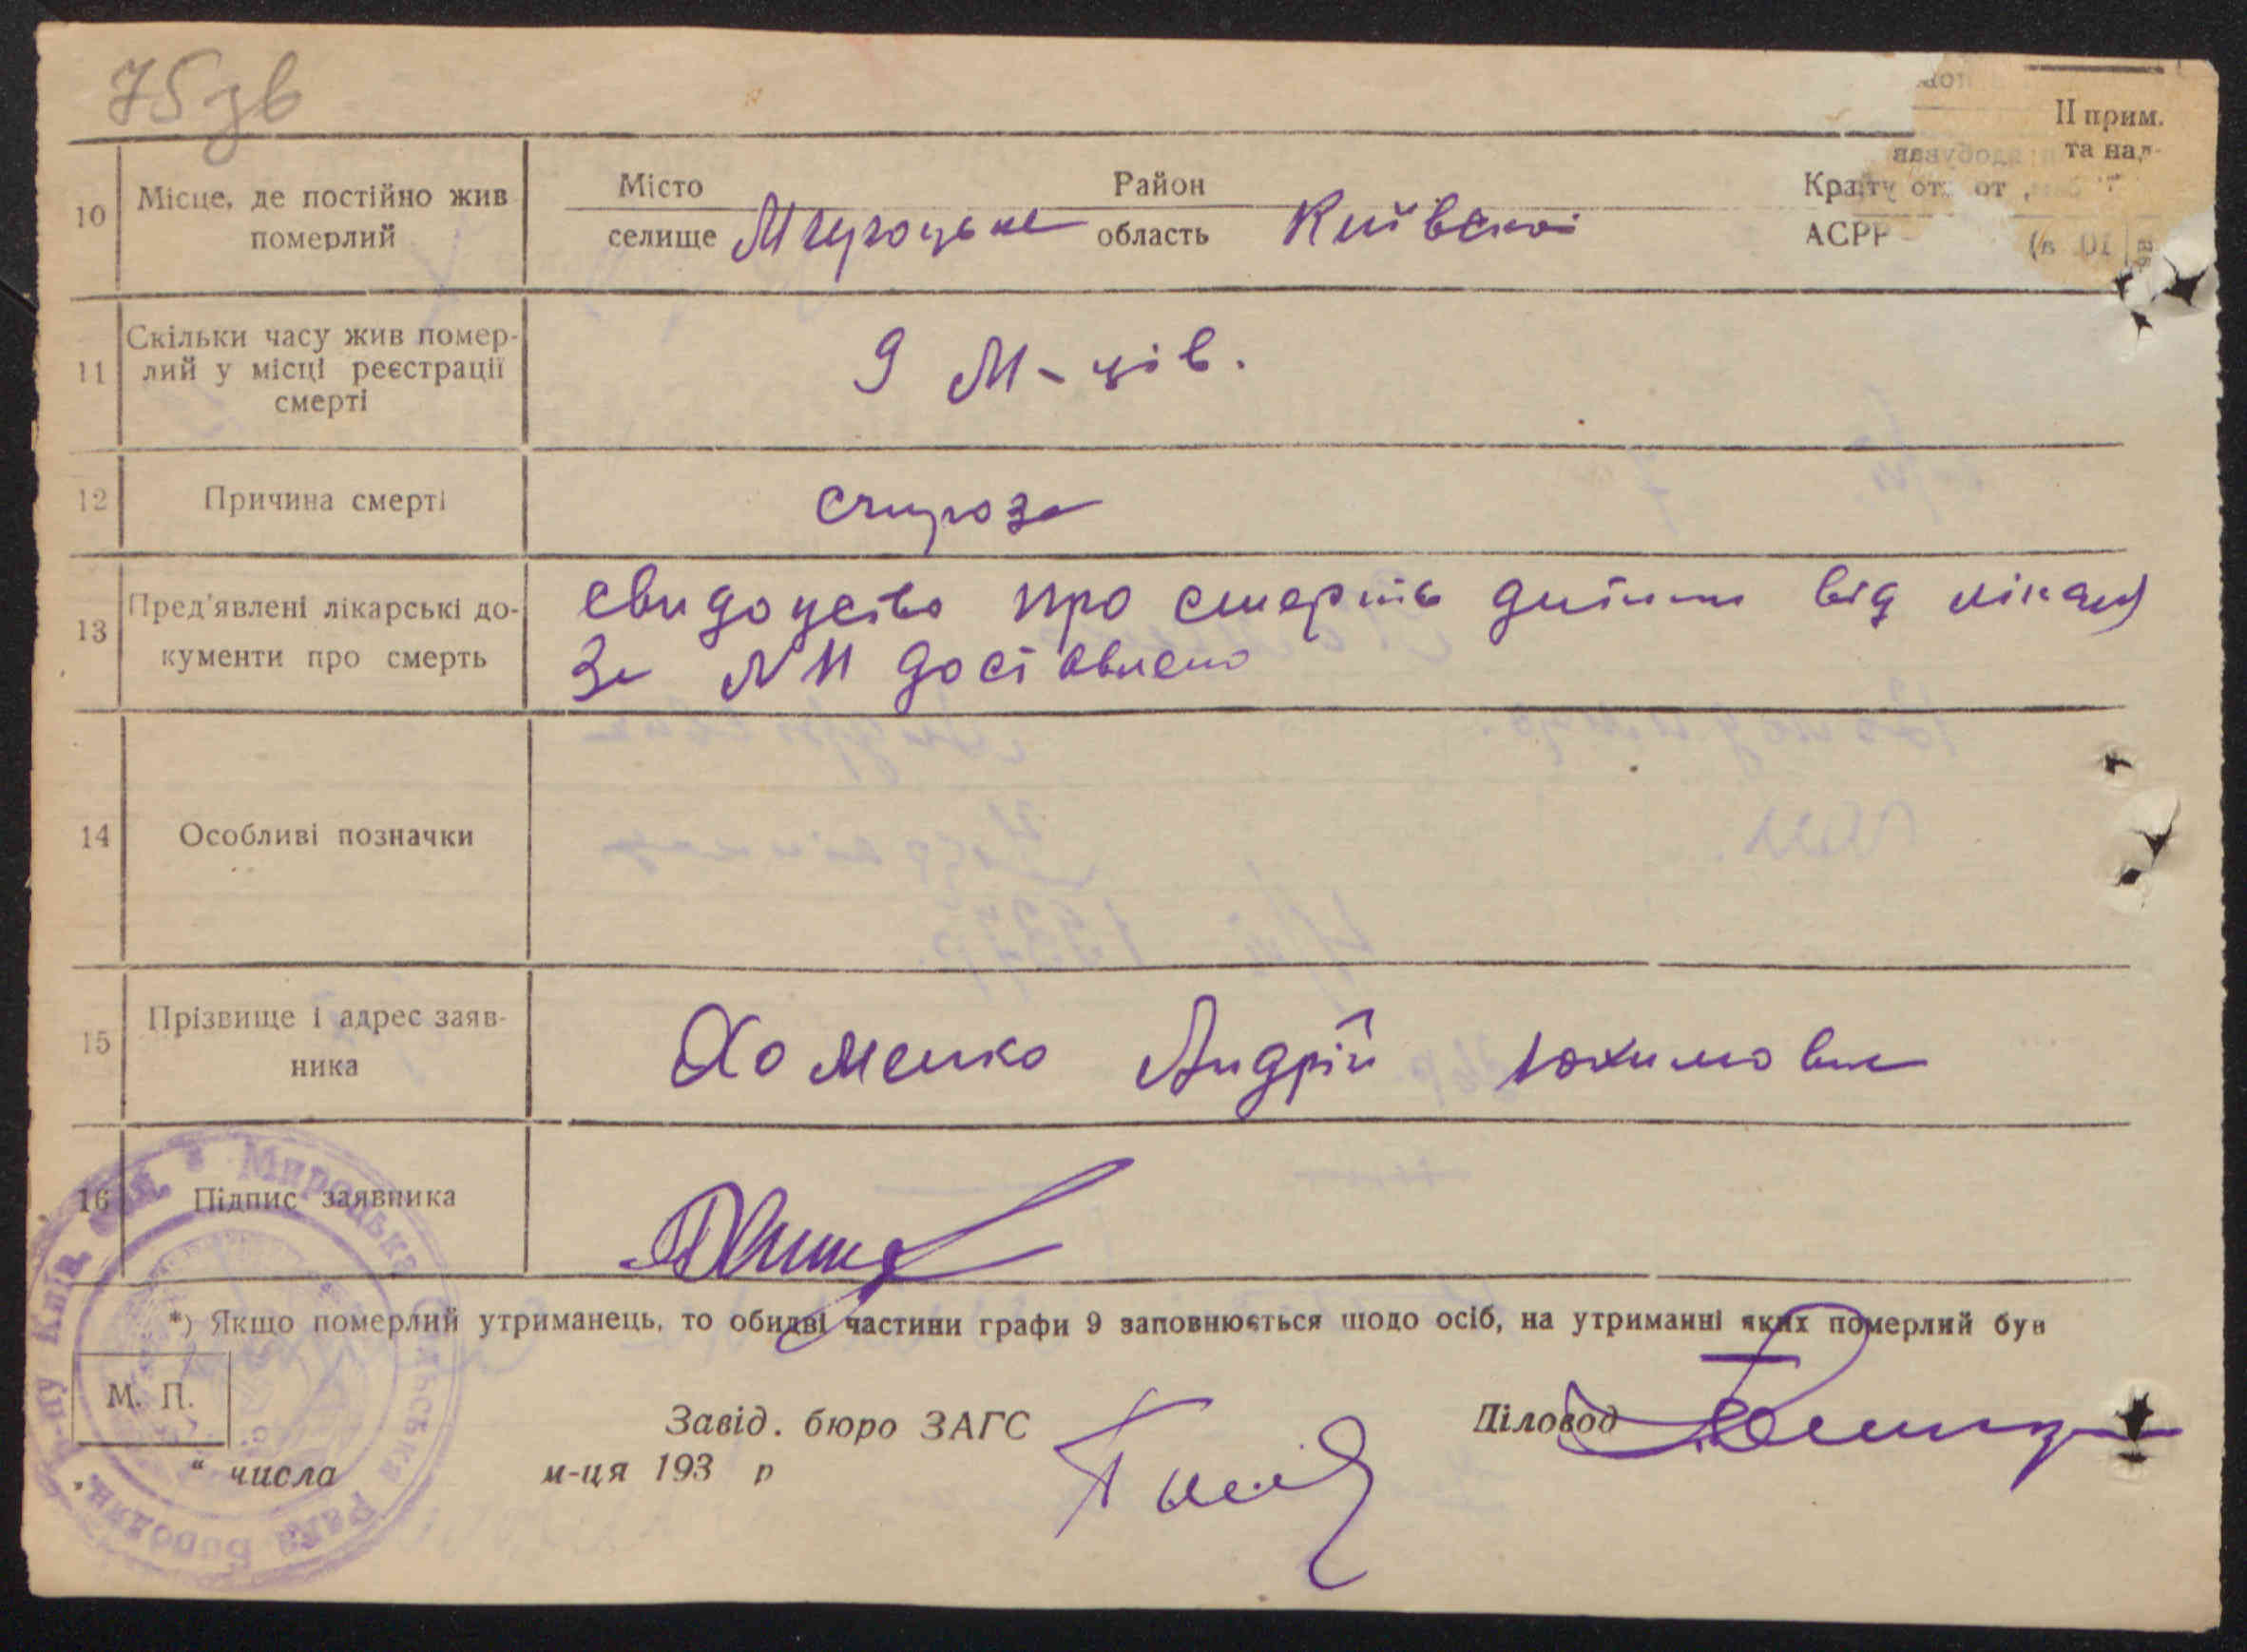 75зв
II прим.
та над-
10 Місце, де постійно жив померлий
Місто
селище
Район
область Київської
АСРР
11 Скільки часу жив помер-
лий у місці реєстрації
смерті
9 м-ців.
12 Причина смерті
13 Пред'явлені лікарські до-
кументи про смерть
свидоцтво про смерть дитини від лікаря
За N 11 доставлено
14 Особливі позначки
15 Прізвище і адрес заяв-
ника
Хоменко Андрій Юхимович
16 Підпис заявника
*) Якщо померлий утриманець, то обидві частини графи 9 заповнюється щодо осіб, на утриманні яких померлий був
М. П.
Завід. бюро ЗАГС
Діловод
„ “ числа м-ця 193 р
Мироцька Сільська Рада Бородян. р-ну Київ. обл.